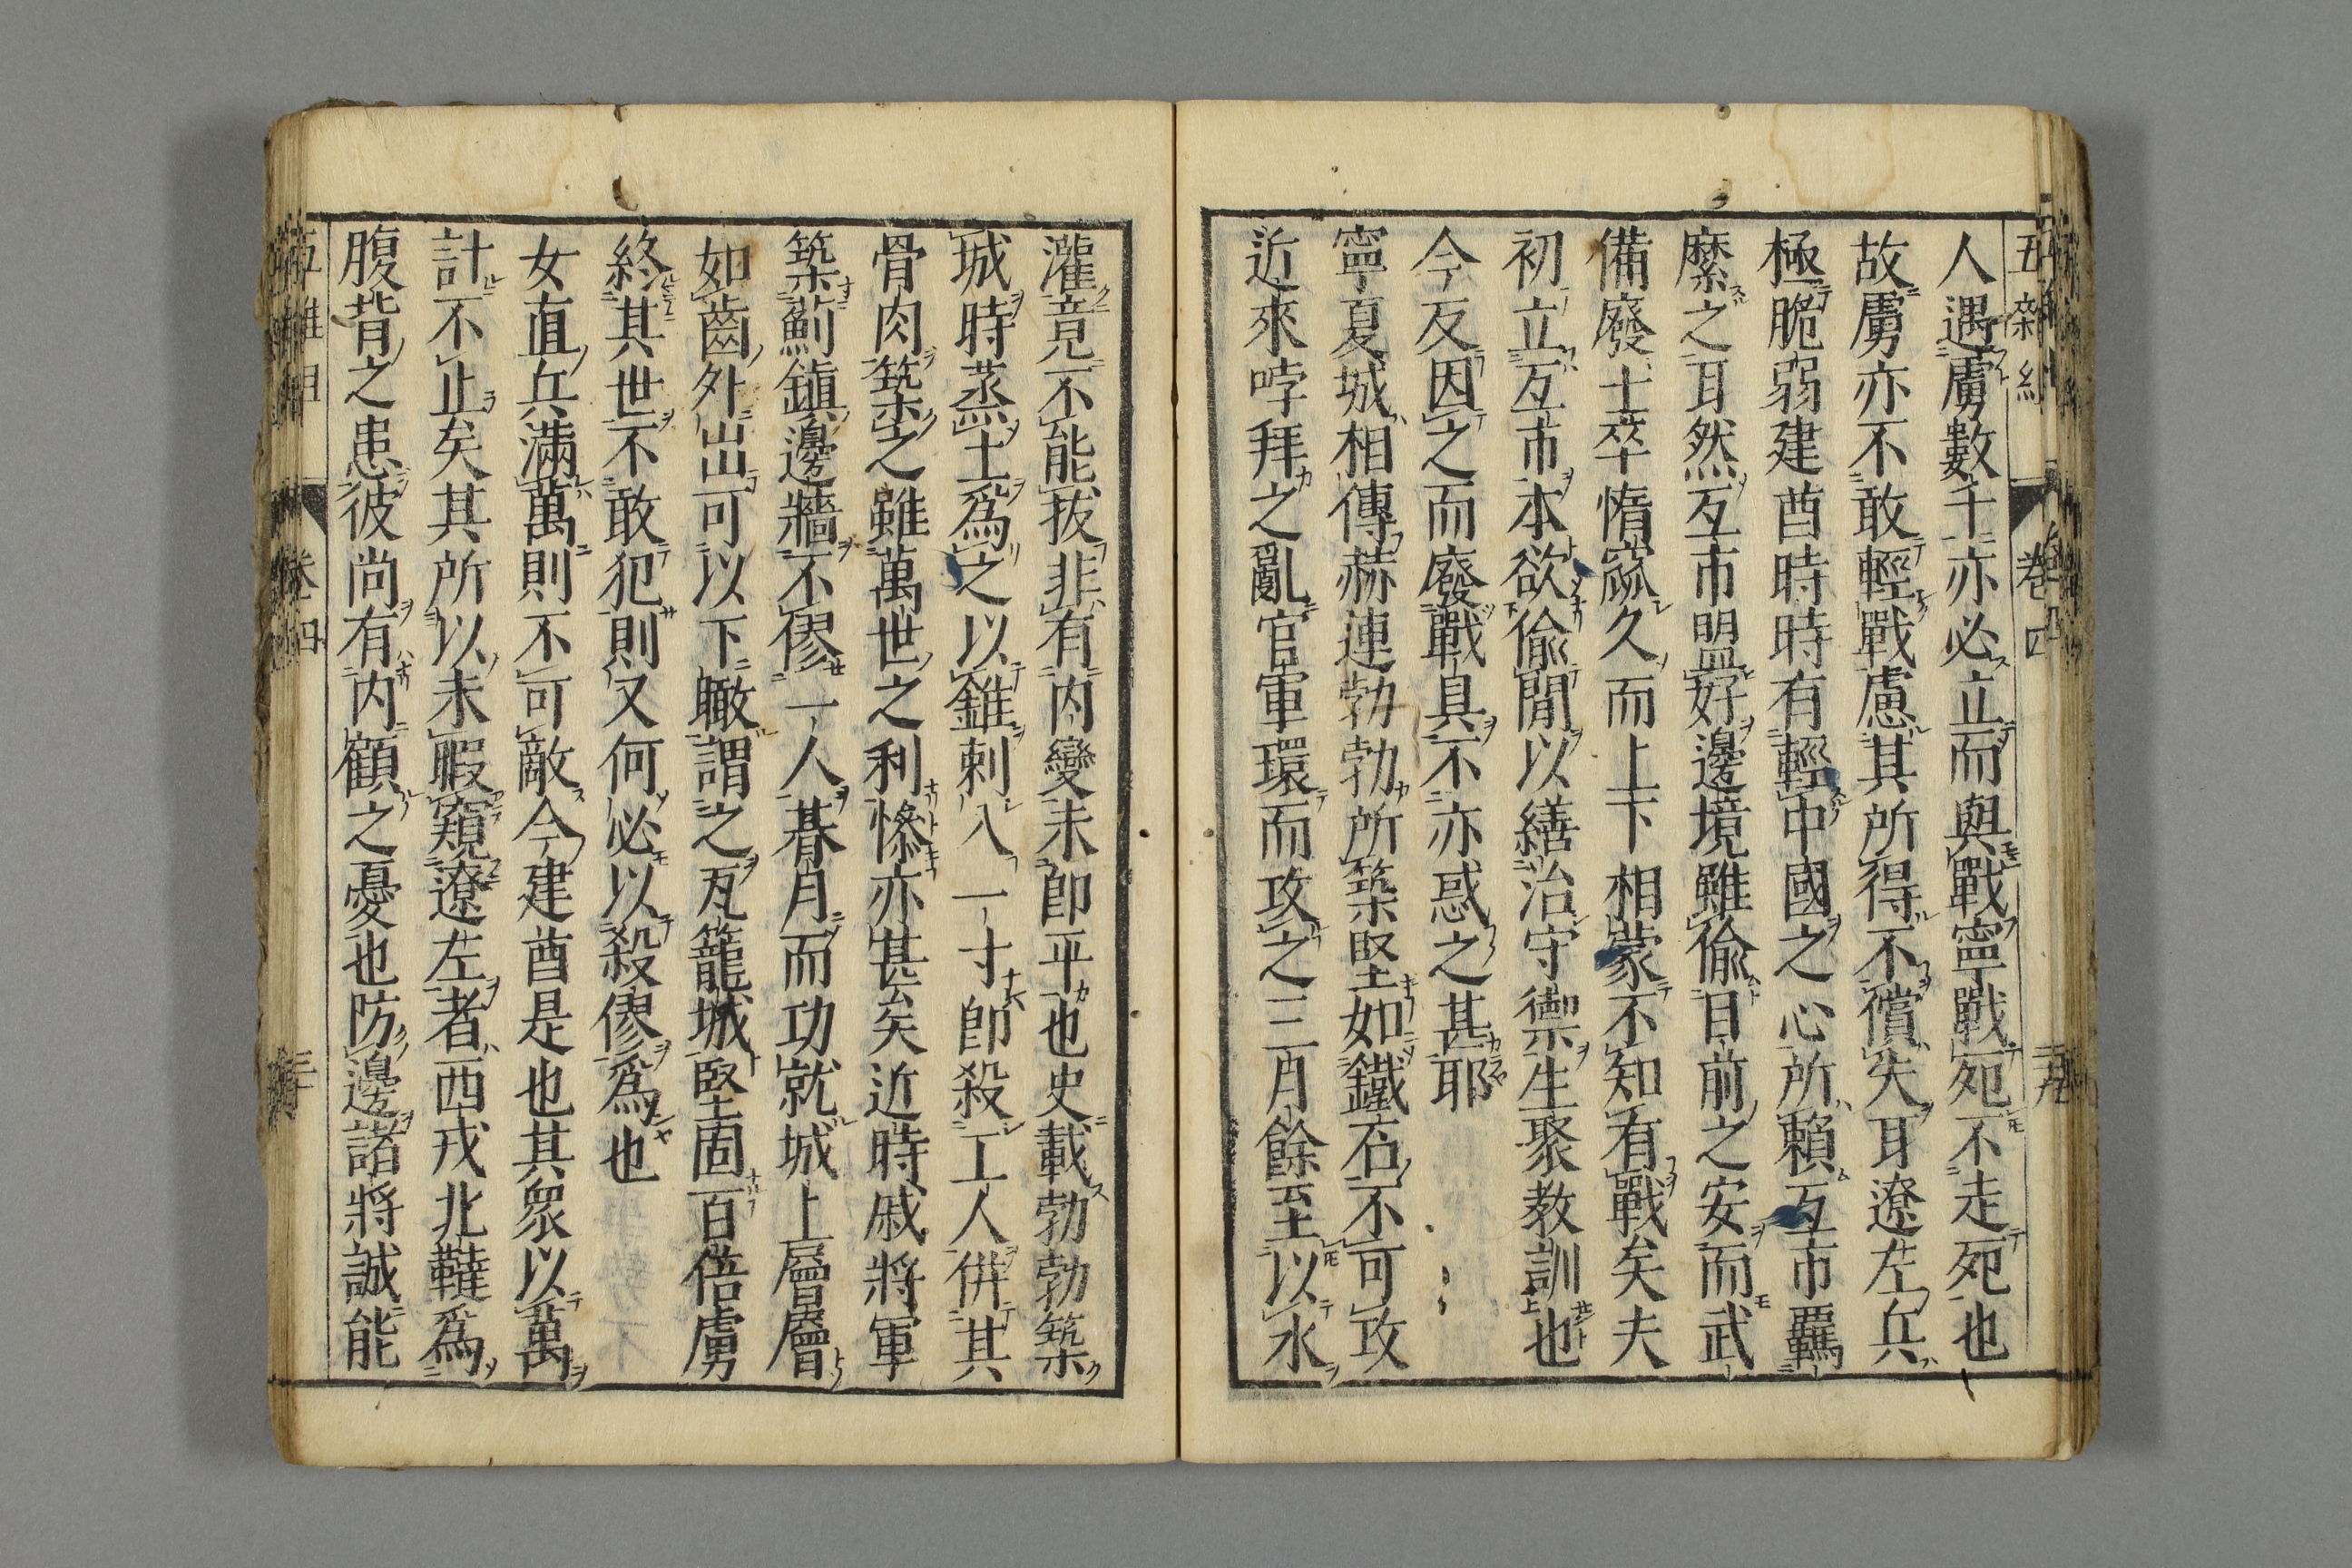 人遇虜數千亦必立而與戰寧戰死不走死也
故虜亦不敢輕戰慮其所得不償失耳遼左兵
極脆弱建酋時時有輕中國之心所賴互市羈
縻之耳然互市盟好邊境雖偷目前之安而武
備廢士卒惰窳久而上下相蒙不知有戰矣夫
初立互市本欲偷閒以繕治守禦生聚教訓也
今反因之而廢戰具不亦惑之甚耶
寧夏城相傳赫連勃勃所築堅如鐵石不可攻
近來哱拜之亂官軍環而攻之三月餘至以水
灌竟不能拔非有内變未卽平也史載勃勃築
城時蒸土爲之以錐刺入一寸卽殺工人併其
骨肉築之雖萬世之利慘亦甚矣近時戚將軍
築薊鎭邊牆不僇一人朞月而功就城上層層
如齒外出可以下瞰謂之瓦籠城堅固百倍虜
終其世不敢犯則又何必以殺僇爲也
女直兵滿萬則不可敵今建酋是也其衆以萬
計不止矣其所以未暇窺遼左者西戎北韃爲
腹背之患彼尚有内顧之憂也防邊諸將誠能